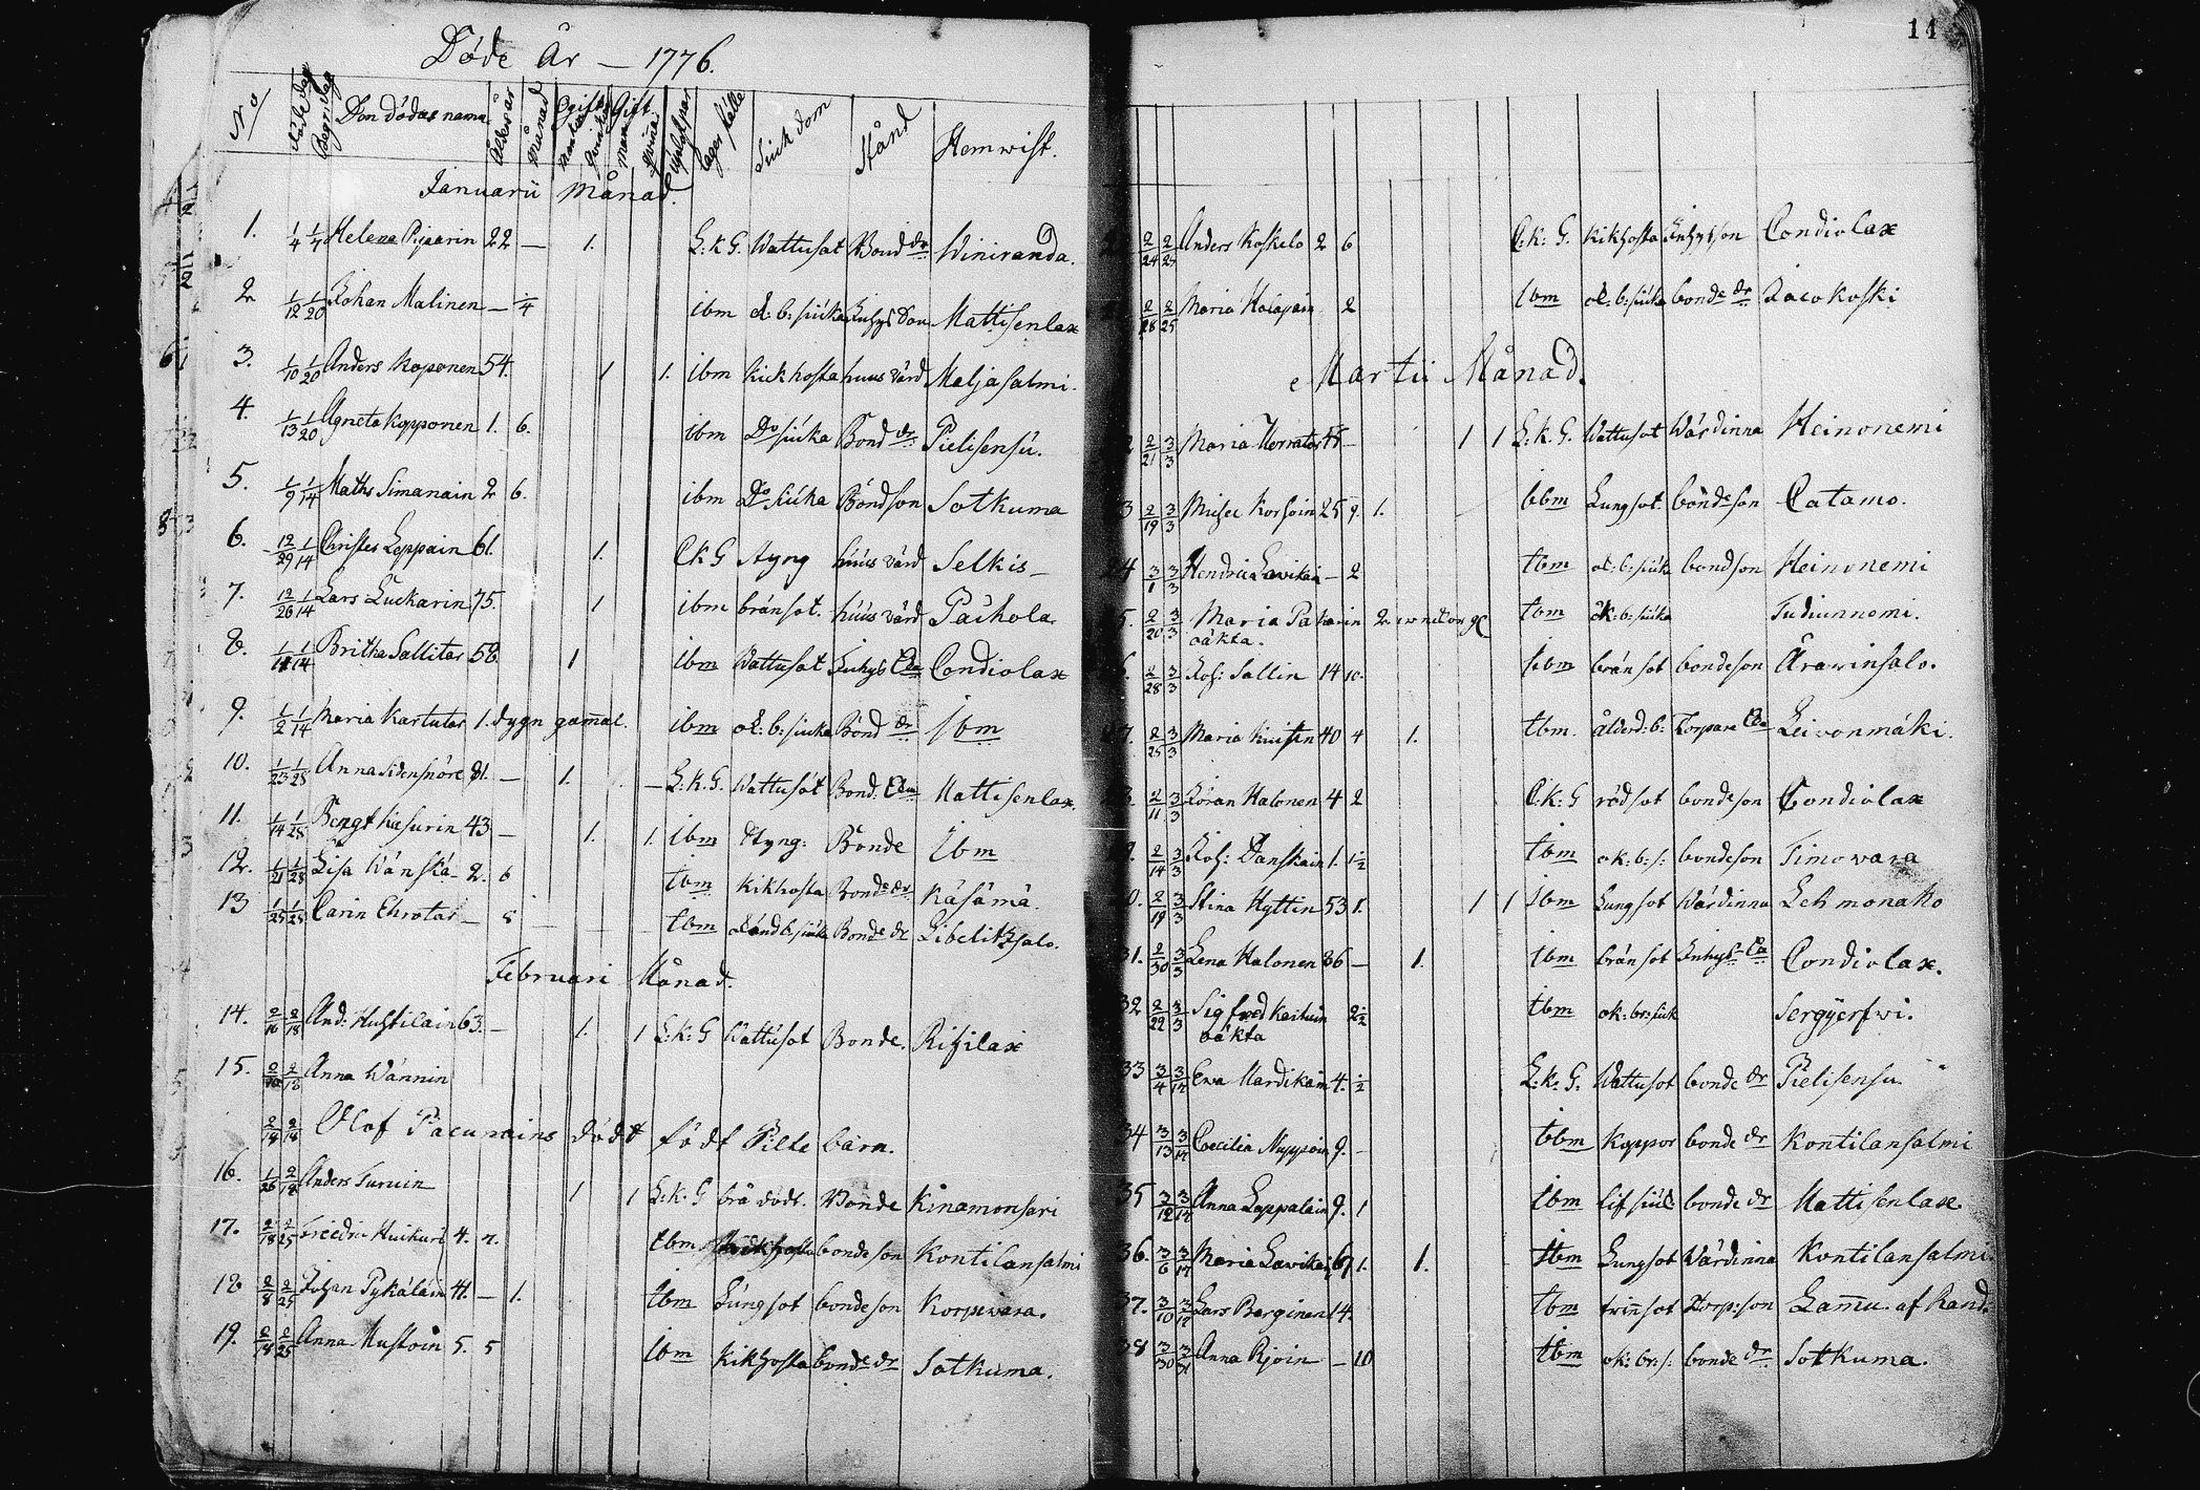 Döde År — 1776.
No Döde dag Begr: dag Den dödas namn Ålder år månad Ogift Gift Lägerställe Siukdom Stånd Hemwist.
Januarii Månad.
1. 1/4 1/7 Helena Pijparin 22 — 1. L:k G. Wattusot Bond dr Winiranda.
2 1/12 1/20 Johan Malinen — 1/4 ibm ok:b:siuka Inhys Son Mattisenlax
3. 1/10 1/20 Anders Koponen 54. 1 1. ibm kickhosta huus wärd Maljasalmi.
4. 1/13 1/20 Agneta Kopponen 1. 6. ibm Do siuka Bond dr Pielisensu.
5. 1/9 1/14 Maths Simanain 2 6. ibm Do siuka Bondson Sotkuma
6. 12/29 1/14 Christer Leppain 61. 1. C k G Styng huus wärd Selkis —
7. 12/26 1/14 Lars Luckarin 75. 1 ibm bränsot. huus wärd Paihola
8. 1/11 1/14 Britha Sallitar 58 1 ibm Wattusot Inhys Ea Condiolax
9. 1/2 1/14 Maria Kartutar 1. dygn gamal. ibm ok:b:siuka Bond dr Ibm
10. 1/23 1/28 Anna Sidensnöre 81. — 1. — L.k.G. Wattusot Bond: Ea Mattisenlax.
11. 1/14 1/28 Bengt Kiesurin 43 — 1. 1. ibm Styng: Bonde Ibm
12. 1/21 1/28 Lisa Wänskä — 2. 6 ibm Kikhosta Bonde dr Käsämä.
13 1/25 1/28 Carin Ehrotar — 8 ibm okänd b:siuka Bonde dr Libelitzsalo.
Februari Månad.
14. 2/16 2/18 And: Huttilain 63. — 1. 1 L:k:G Wattusot Bonde. Rihilax
15. 2/10 2/18 Anna Wännin
2/18 2/18 Olof Pacurains dödt födt Pilte barn.
16. 1/26 2/18 Anders Turuin 1 1 L:k.G brå död. Bonde Kinamonsari
17. 2/18 2/25 Friedric Huikuri 4. n. ibm bondeson Kontilansalmi
18 2/8 2/25 Johan Pykäläin 41. — 1. ibm Lungsot bondeson Korpewara.
19. 2/18 2/25 Anna Mustoin 5. 5 ibm Kikhosta bonde dr Sotkuma.
11
2/24 2/25 Anders Koskelo 2 6 C:k:G. kikhosta Inhysson Condiolax
2/28 2/25 Maria Halapain 2 ibm ok:b:siuka bonde dr Jacokoski
Martii Månad.
2/21 3/3 Maria Horratar — 1 1 L:k.G. Wattusot Wärdinna Heinonemi
3 2/19 3/3 Michel Korhoin 25 9. 1. ibm Lungsot. bondeson Catamo.
24 3/1 3/3 Hendric Lavikain — 2 ibm ok:b:siuka bondson Heinonemi
5. 2/20 3/3 Maria Pakarin 2 oäkta. ibm ok:b:siuka
6. 2/28 3/3 Joh: Sallin 14 10. ibm bränsot bondeson Ärawinsalo.
27. 2/25 3/3 Maria Kuistin 40 4 1. ibm. ålderd:b: Torpare Ea Leivonmäki.
2/11 3/3 Jöran Halonen 4 2 C:k:G rödsot bondeson Condiolax
9. 2/14 3/3 Joh: Danskain 1. 1 1/2 ibm ok:b:s: bondeson Timowara
0. 2/19 3/3 Stina Hyttin 53 1. 1 1 ibm Lungsot Wärdinna Lehmonako
31. 2/30 3/3 Lena Halonen 36 — 1. ibm bränsot Inhys Ea Condiolax.
32 2/22 3/3 Sigfred Kartuin 2 1/2 oäkta ibm ok:br:siuk Sergyerfwi.
33 3/4 3/17 Ewa Mardikain 4. 1/2 L:k:G. Wattusot bonde dr Pielisensu.
34 3/13 3/17 Cecilia Nuppoin 9. — ibm Koppor bonde dr Kontilansalmi
35 3/12 3/17 Anna Lappalain 9. 1 ibm lifsiuk bonde dr Mattisenlax.
36. 3/6 3/17 Maria Lavikain 67 1. 1. ibm Lungsot Wärdinna Kontilansalmi
37. 3/10 3/17 Lars Berginen 14. ibm trinsot Torp:son Lamu. af Rand.
38 3/30 3/31 Anna Rjoin — 10 ibm ok:br:s: bonde dr Sotkuma.